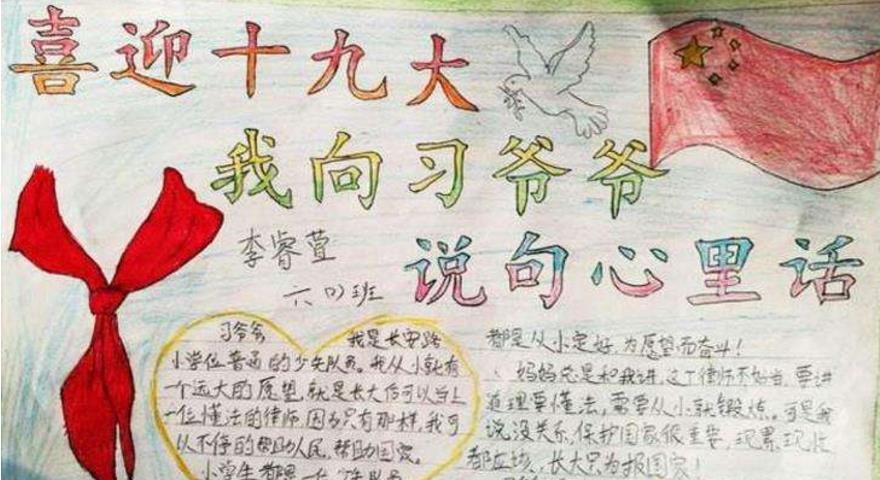 喜迎十九大
我向习爷爷
说句心里话
李睿萱
六(1)班
习爷爷 我是长安路
小学位普通的少先队员。我从小就有
一个远大的愿望,就是长大后可以当上
一位懂法的律师,因为只有那样,我可
以不停的帮助人民,帮助国家。
小学生都是一 少先队员
都是从小定好,为愿望而奋斗!
妈妈总是和我讲,这个律师不好当,要讲
道理要懂法,需要从小就锻炼。可是我
说,没关系,保护国家很重要,现累,现忙
都应该,长大只为报国家!